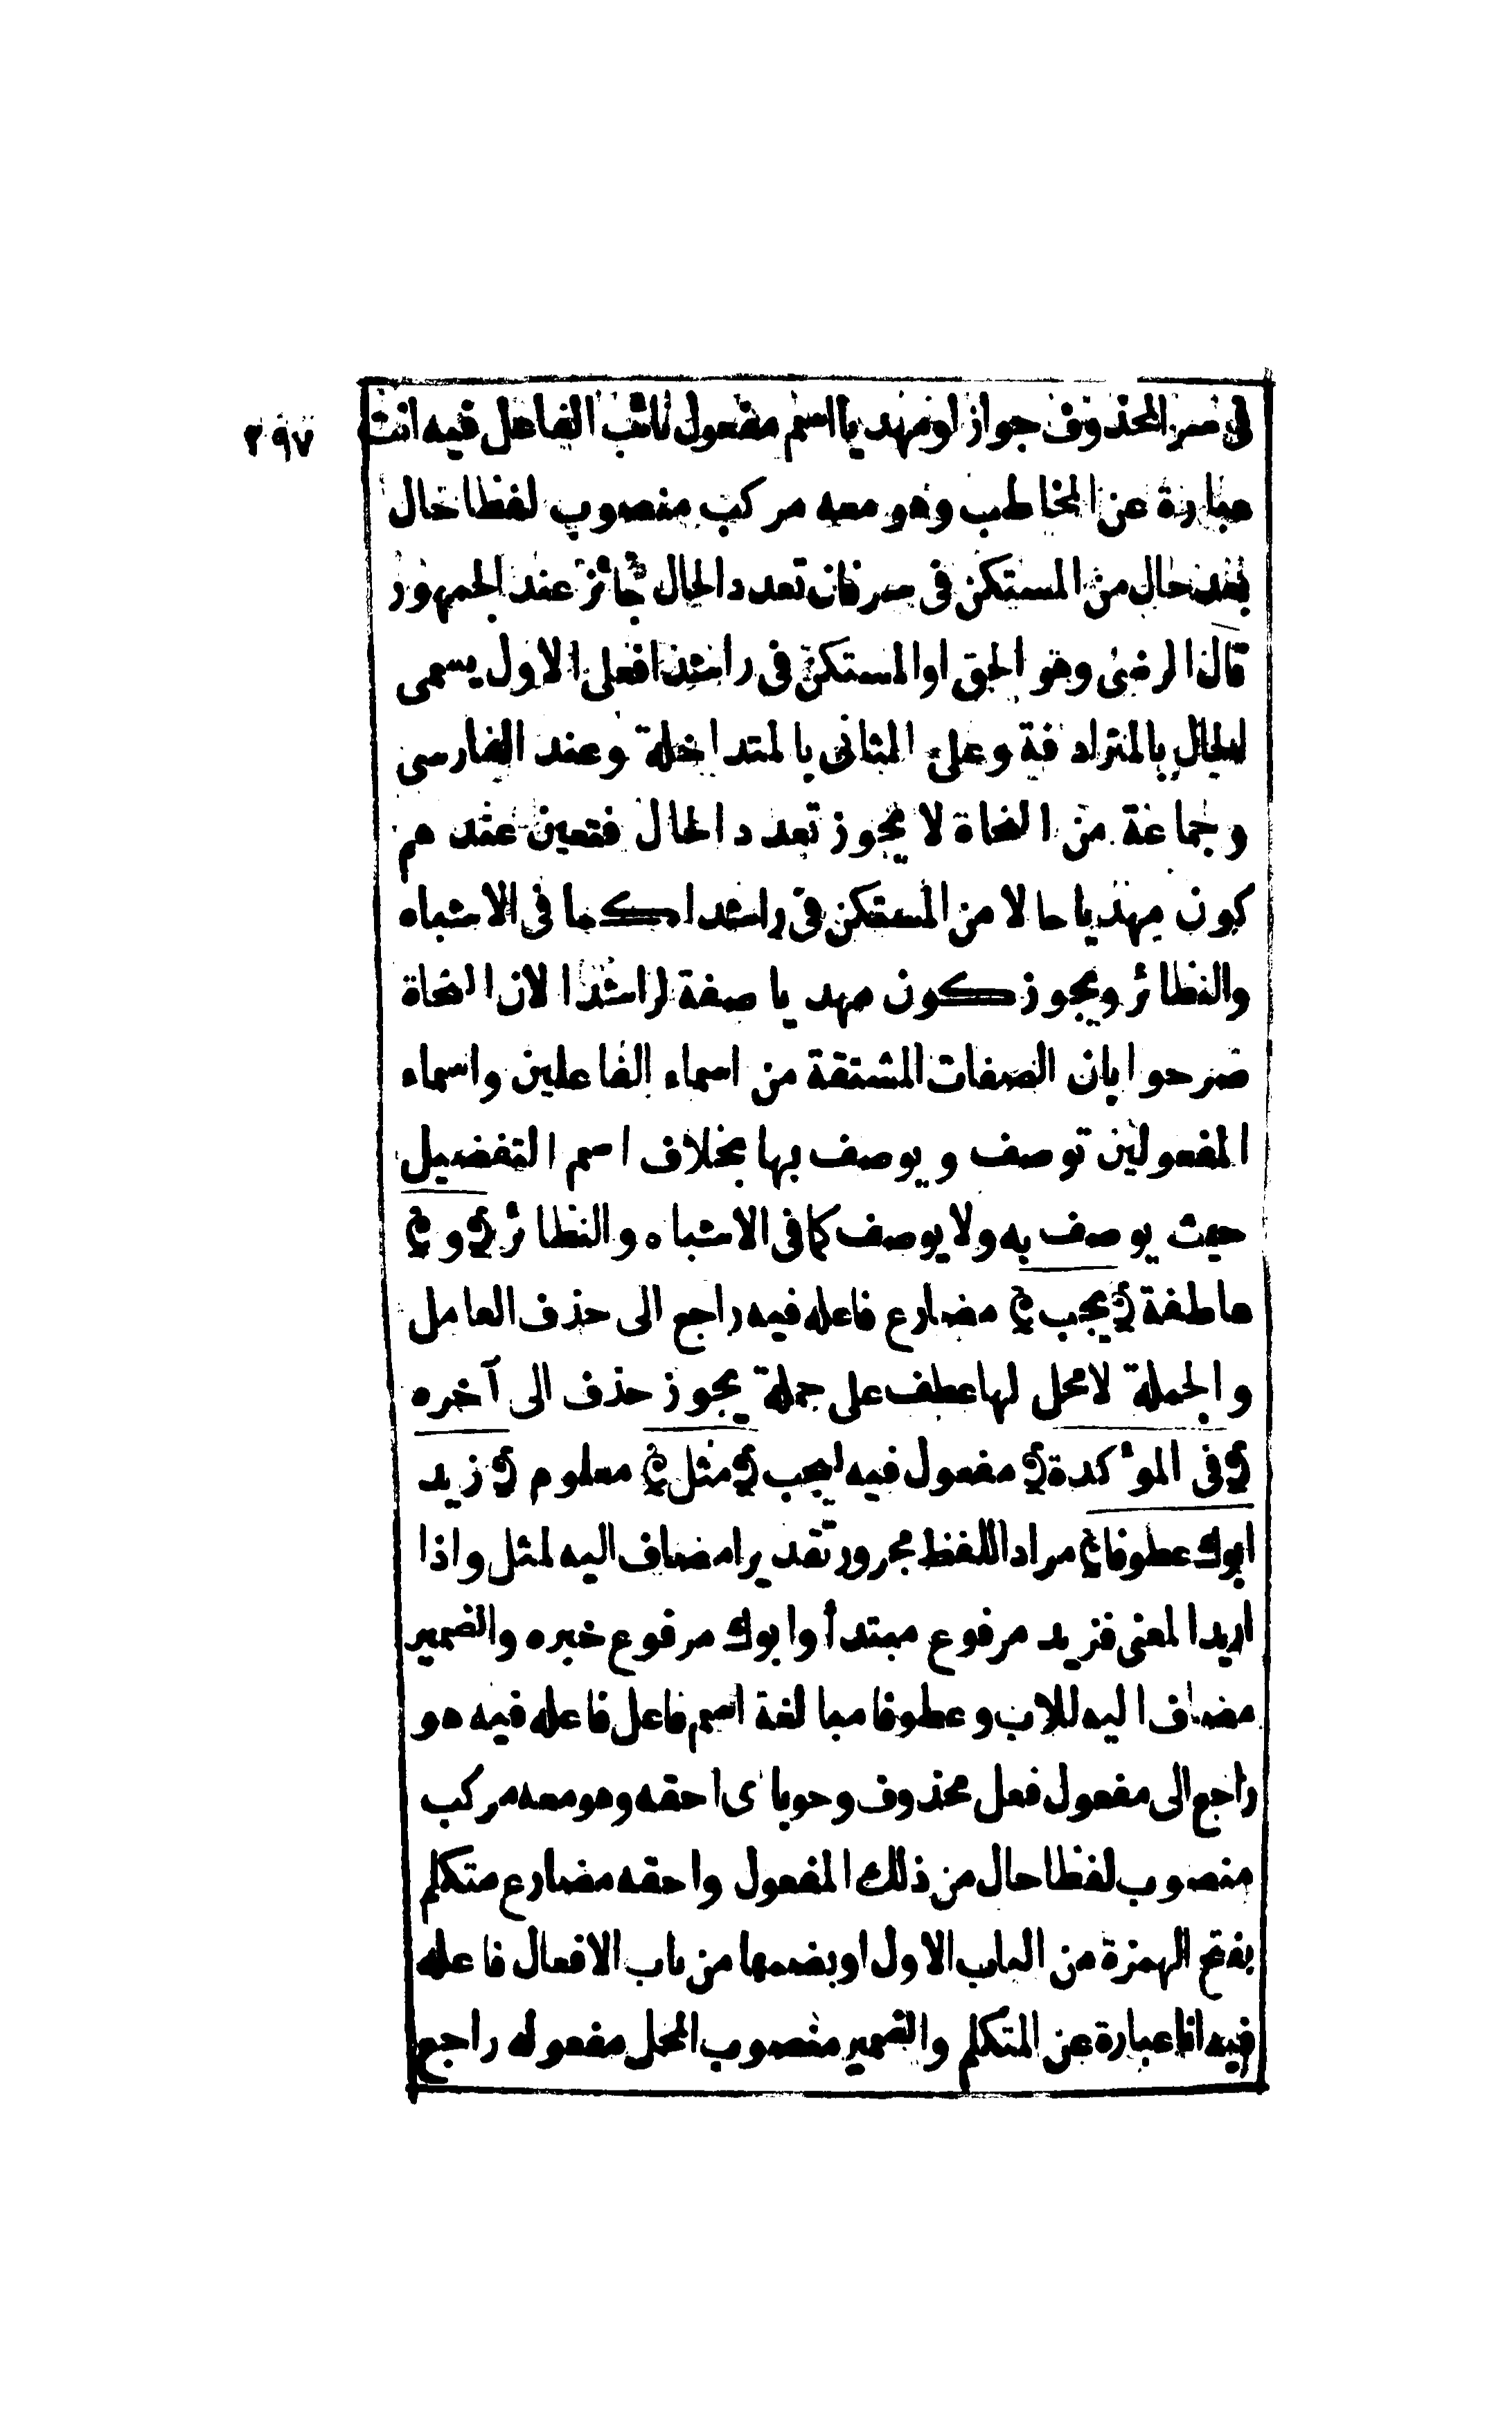 ٢٩٧
فى سر المحذوف جوازا ومهديا اسم مفعول نائب الفاعل فيه انت
عبارة عن المخاطب وهو معه مركب منصوب لفظا حال
بعد حال من المستكن فى سر فان تعدد الحال جائز عند الجمهور
قال الرضى وهو الحق او المستكن فى راشدا فعلى الاول يسمى
الحال بالمترادفة وعلى الثانى بالمتداخلة وعند الفارسى
وجماعة من النحاة لا يجوز تعدد الحال فتعين عندهم
كون مهديا حالا من المستكن فى راشدا كما فى الاشباه
والنظائر ويجوز كون مهديا صفة لراشدا لان النحاة
صرحوا بان الصفات المشتقة من اسماء الفاعلين واسماء
المفعولين توصف ويوصف بها بخلاف اسم التفضيل
حيث يوصف به ولا يوصف كما فى الاشباه والنظائر ﴿و﴾
عاطفة ﴿يجب﴾ مضارع فاعله فيه راجع الى حذف العامل
والجملة لا محل لها عطف على جملة يجوز حذف الى آخره
﴿فى المؤكدة﴾ مفعول فيه ليجب ﴿مثل﴾ معلوم ﴿زيد
ابوك عطوفا﴾ مراد اللفظ مجرور تقديرا مضاف اليه لمثل واذا
اريد المعنى فزيد مرفوع مبتدأ وابوك مرفوع خبره والضمير
مضاف اليه للاب وعطوفا مبالغة اسم فاعل فاعله فيه هو
راجع الى مفعول فعل محذوف وجوبا اى احقه وهو معه مركب
منصوب لفظا حال من ذلك المفعول واحقه مضارع متكلم
بفتح الهمزة من الباب الاول او بضمها من باب الافعال فاعله
فيه انا عبارة عن المتكلم والضمير منصوب المحل مفعوله راجع